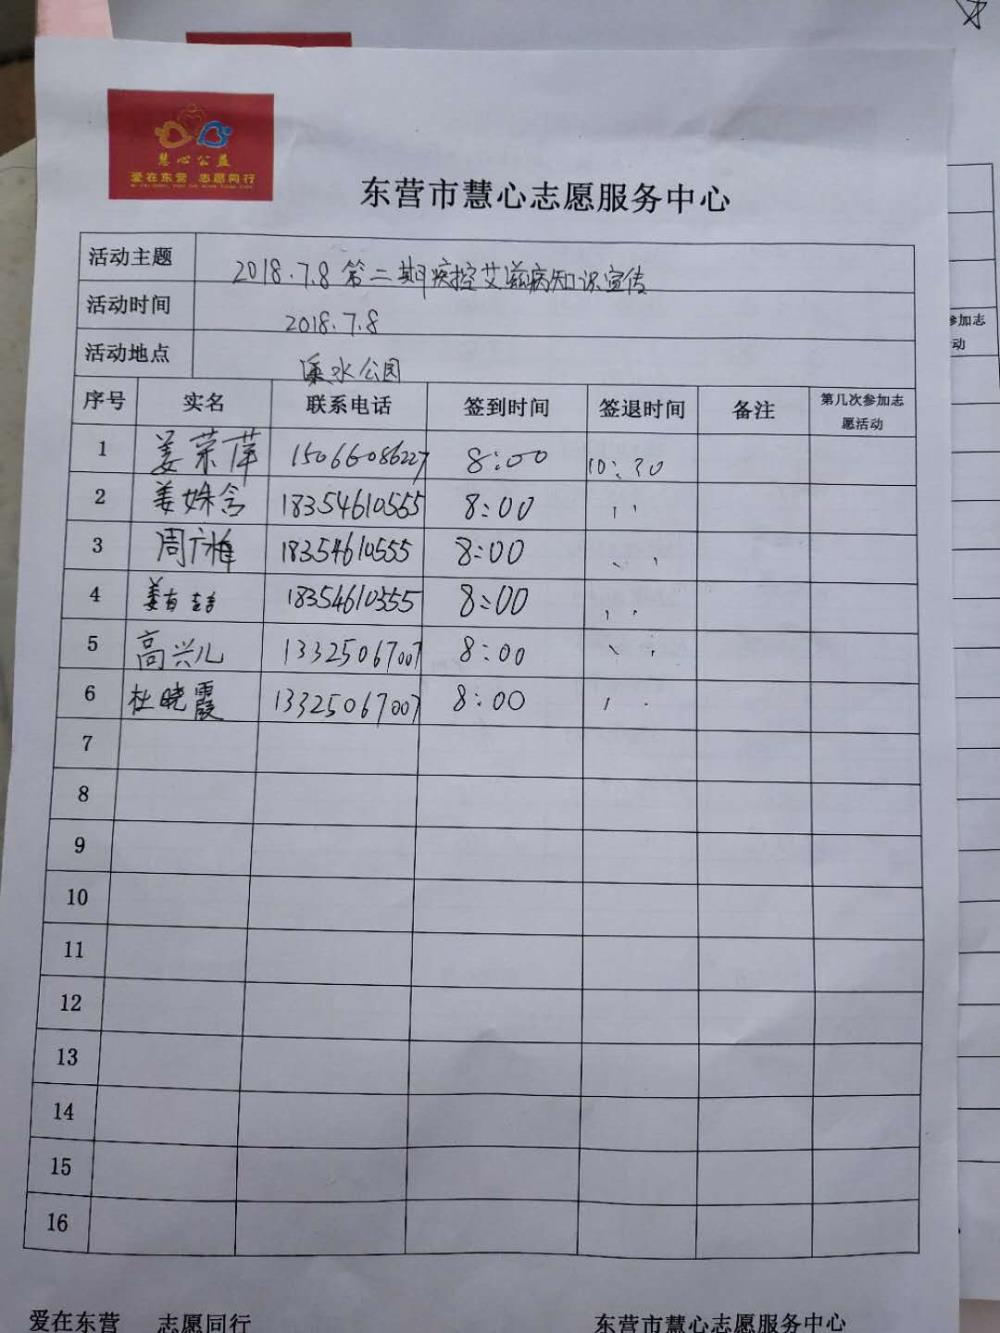 慧心公益
爱在东营 志愿同行
东营市慧心志愿服务中心
活动主题 2018.7.8 第二期疾控艾滋病知识宣传
活动时间 2018.7.8
活动地点 水公园
序号 实名 联系电话 签到时间 签退时间 备注 第几次参加志愿活动
1 姜荣萍 15066086227 8:00 10:30
2 姜姝含 18354610555 8:00 ''
3 周广梅 18354610555 8:00 ''
4 姜 18354610555 8:00 ''
5 高兴儿 13325067007 8:00 ''
6 杜晓霞 13325067007 8:00 ''
7
8
9
10
11
12
13
14
15
16
爱在东营 志愿同行 东营市慧心志愿服务中心
参加志
动